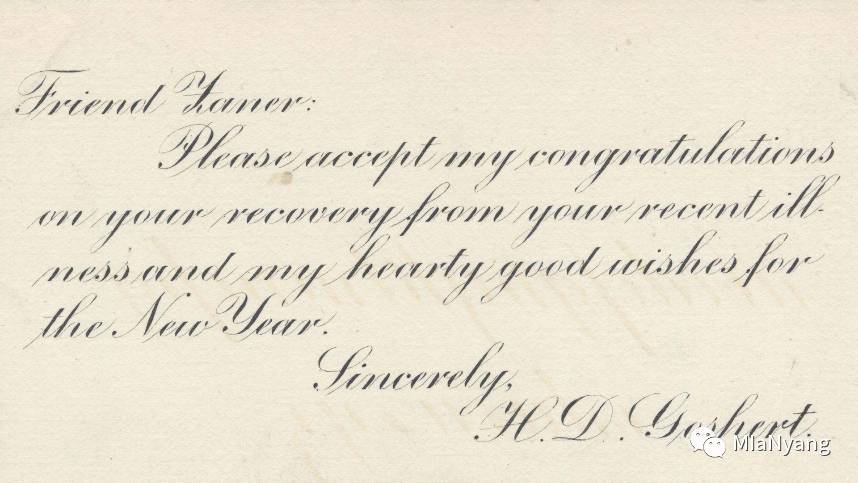 Friend Zaner:
Please accept my congratulations
on your recovery from your recent ill-
ness and my hearty good wishes for
the New Year.
Sincerely,
H. D. Goshert.
MlaNyang